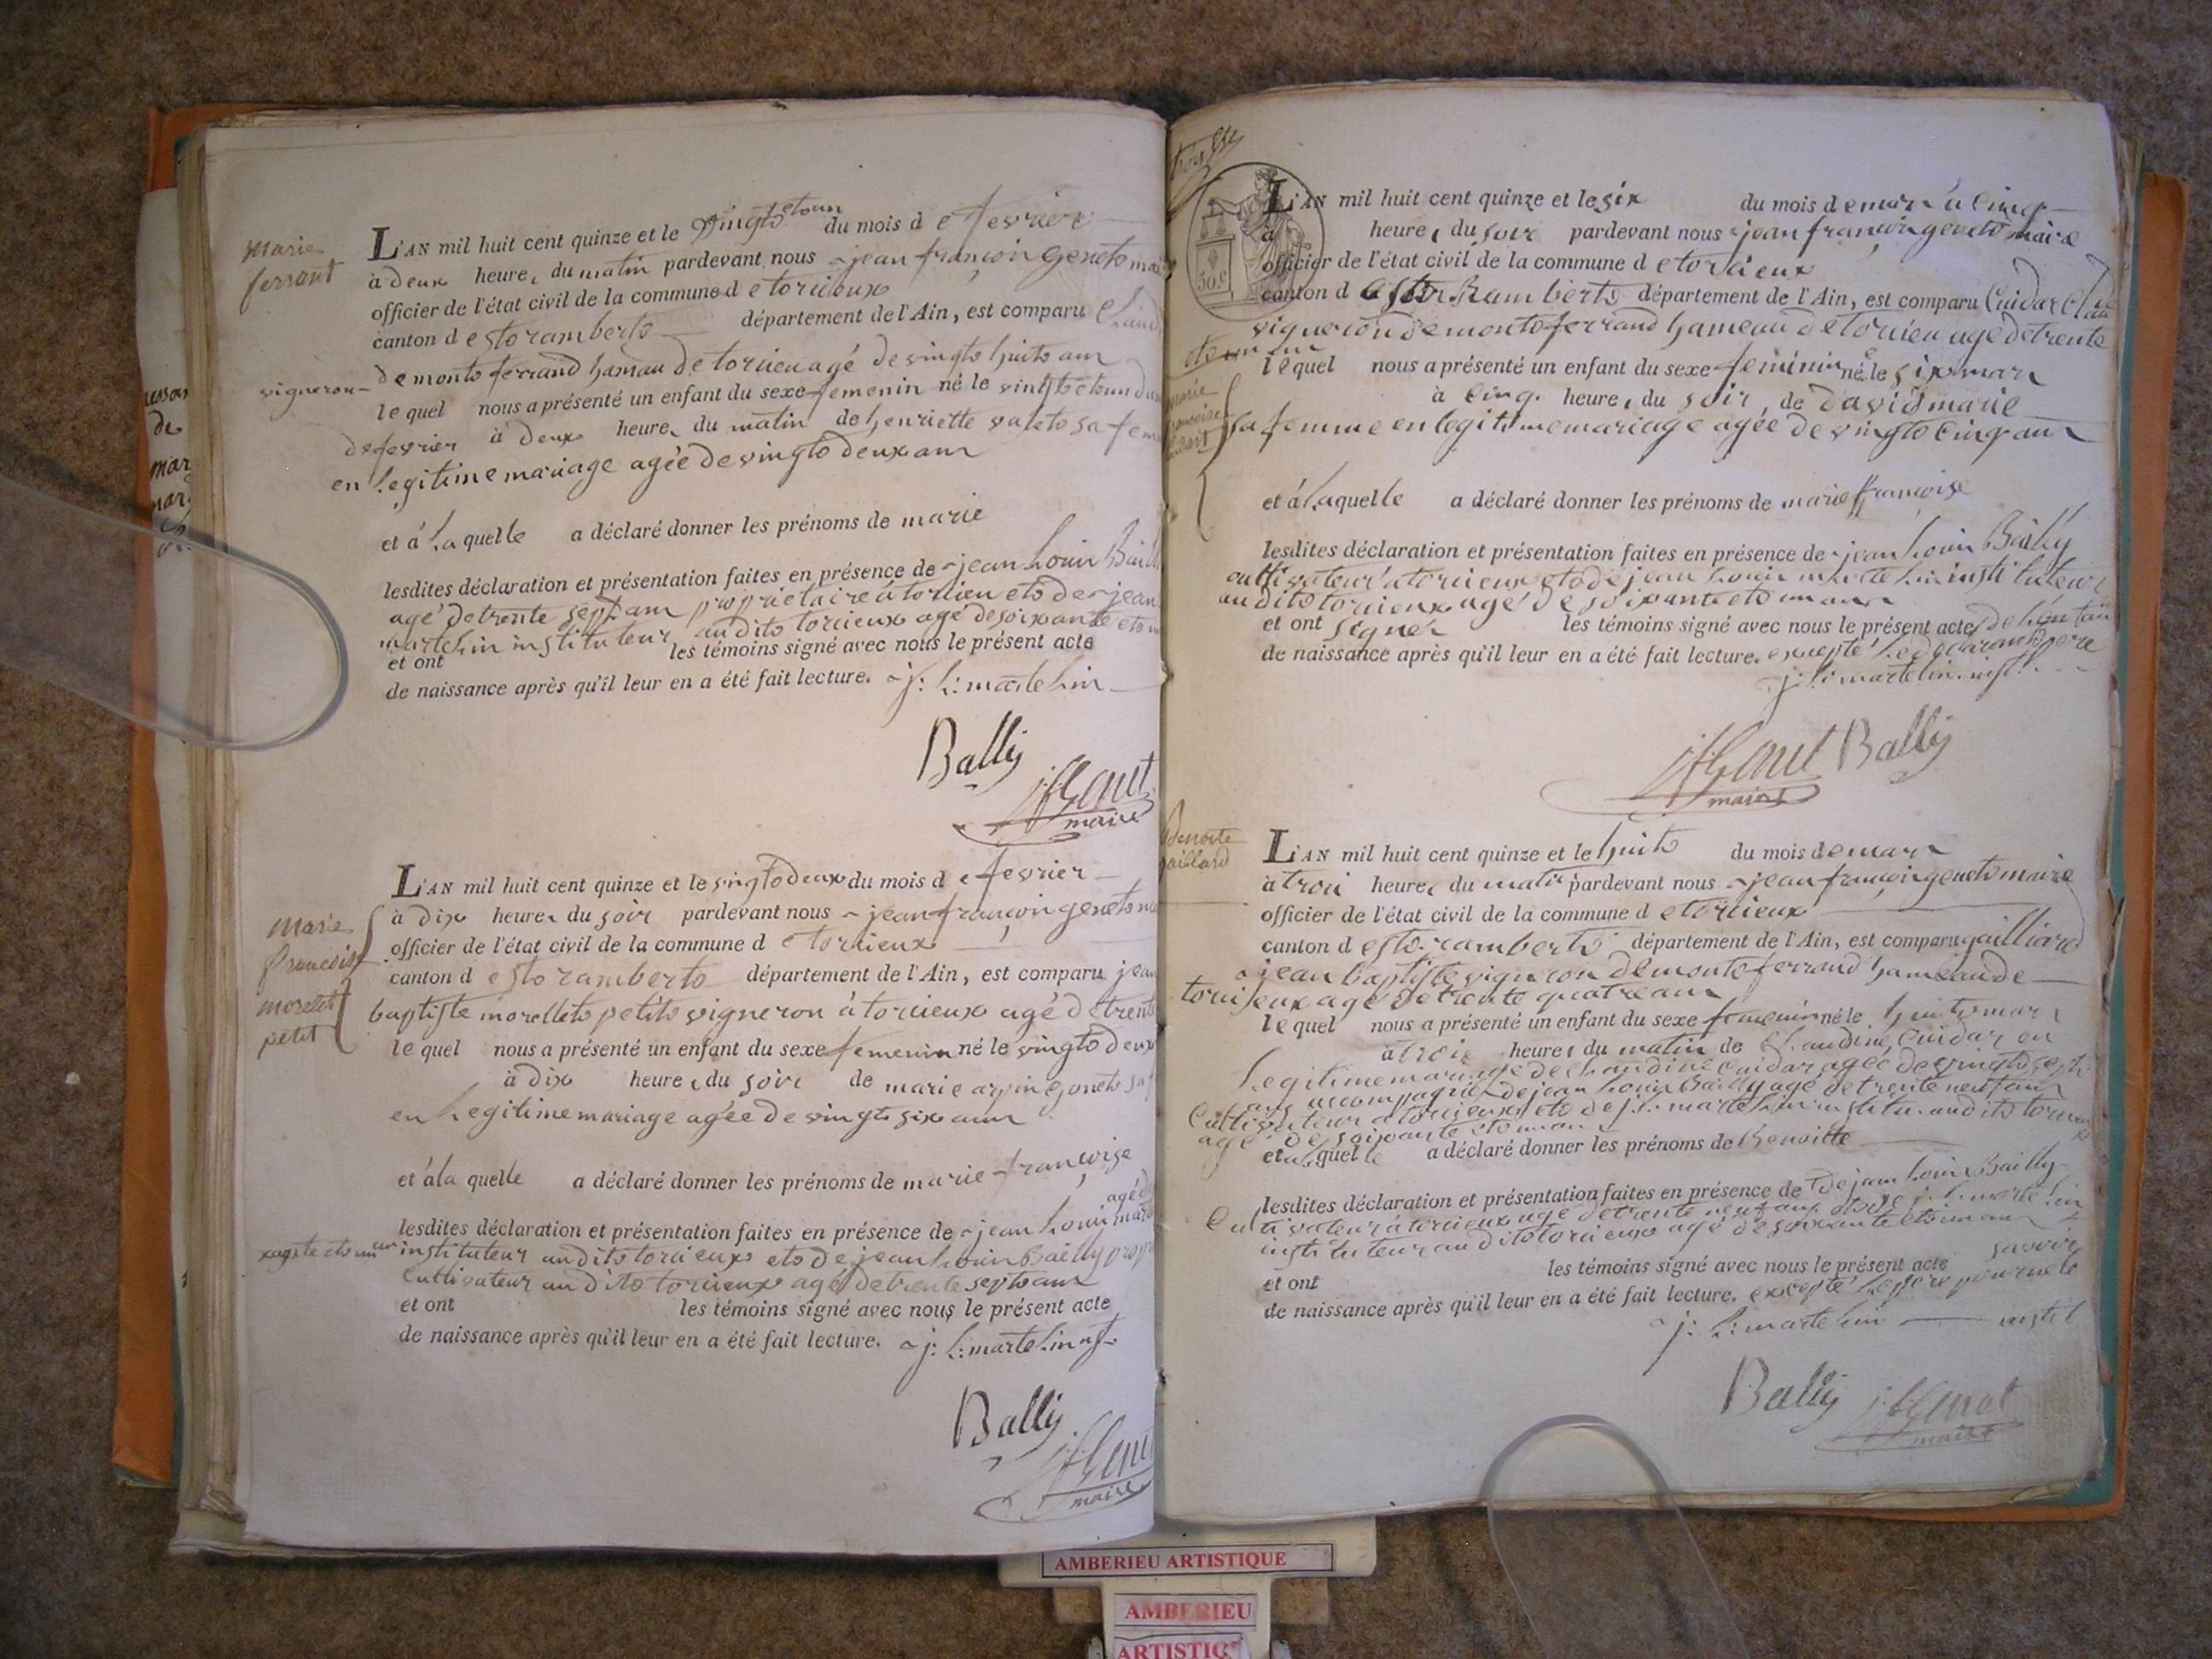 marie
ferrant
L'AN mil huit cent quinze et le vingt et un du mois d e fevrier
à deux heure, du matin pardevant nous jean françois genet
officier de l'état civil de la commune d e torcieux
canton d e st ramberts département de l'Ain, est comparu
vigneron de mont ferrand hamau de torcieu agé de vingt huit ans
le quel nous a présenté un enfant du sexe femenin né le vingt et un
de fevrier à deux heure, du matin de henriette sa
en legitime mariage agée de vingt deux ans
et à laquelle a déclaré donner les prénoms de marie
lesdites déclaration et présentation faites en présence de jean Louis
agé de trente sept ans propriétaire à torcieu et de jean
martelin instituteur au dit torcieux agé de soixante et
et ont les témoins signé avec nous le présent acte
de naissance après qu'il leur en a été fait lecture. j: L: martelin
Bally
jf Genet
maire
marie
francoise
morelet
petit
L'AN mil huit cent quinze et le vingt deux du mois d e fevrier
à dix heure, du soir pardevant nous jean françois genet
officier de l'état civil de la commune d e torcieux
canton d e st ramberts département de l'Ain, est comparu jean
baptiste morellet petit vigneron à torcieux agé de trente
le quel nous a présenté un enfant du sexe femenin né le vingt deux
à dix heure, du soir de marie
en legitime mariage agée de vingt six ans
et à la quelle a déclaré donner les prénoms de marie françoise
lesdites déclaration et présentation faites en présence de jean Louis agé de
instituteur au dit torcieux et de jean Louis Bailly
cultivateur au dit torcieux agé de trente sept ans
et ont les témoins signé avec nous le présent acte
de naissance après qu'il leur en a été fait lecture. j: L: martelin
Bally
jf Genet
maire
30.C
L'AN mil huit cent quinze et le six du mois d e mars à cinq
à heure, du soir pardevant nous jean françois genet maire
officier de l'état civil de la commune d e torcieux
canton d e st Ramberts département de l'Ain, est comparu Cuidar
vigneron de mont ferrand hameau de torcieu agé de trente
et un ans
le quel nous a présenté un enfant du sexe feminin né le six mars
à cinq heure, du soir, de david marie
sa femme en legitime mariage agée de vingt cinq ans
marie
francoise
et à laquelle a déclaré donner les prénoms de marie françoise
lesdites déclaration et présentation faites en présence de jean Louis Bailly
cultivateur a torcieux et de jean Louis martelin instituteur
au dit torcieux agé de soixante et un ans
et ont signer les témoins signé avec nous le présent acte
de naissance après qu'il leur en a été fait lecture. excepté le declarant pere
j: L: martelin. inst.
jf Genet Bally
maire
Benoite
gaillard
L'AN mil huit cent quinze et le huit du mois d e mars
à trois heure, du matin pardevant nous jean françois genet maire
officier de l'état civil de la commune d e torcieux
canton d e st. ramberts département de l'Ain, est comparu gailliard
jean baptiste vigneron de mont ferrand hameau de
torcieux agé de trente quatre ans
le quel nous a présenté un enfant du sexe femenin né le huit mars
à trois heure, du matin de Claudine Cuidar en
legitime mariage de Claudine cuidar agée de vingt sept
ans accompagné de jean Louis Bailly agé de trente neuf ans
cultivateur a torcieux et de j. L. martelin institu. au dit
agé de soixante et un ans
et à laquelle a déclaré donner les prénoms de Benoitte
lesdites déclaration et présentation faites en présence de de jean Louis Bailly
cultivateur a torcieux agé de trente neuf ans et de j. L. martelin
instituteur au dit torcieux agé de soixante et un ans
et ont les témoins signé avec nous le présent acte savoir
de naissance après qu'il leur en a été fait lecture. excepté le pere pour ne le
j: L: martelin instit
Bally jf Genet
maire
AMBERIEU ARTISTIQUE
AMBERIEU
ARTISTIQ